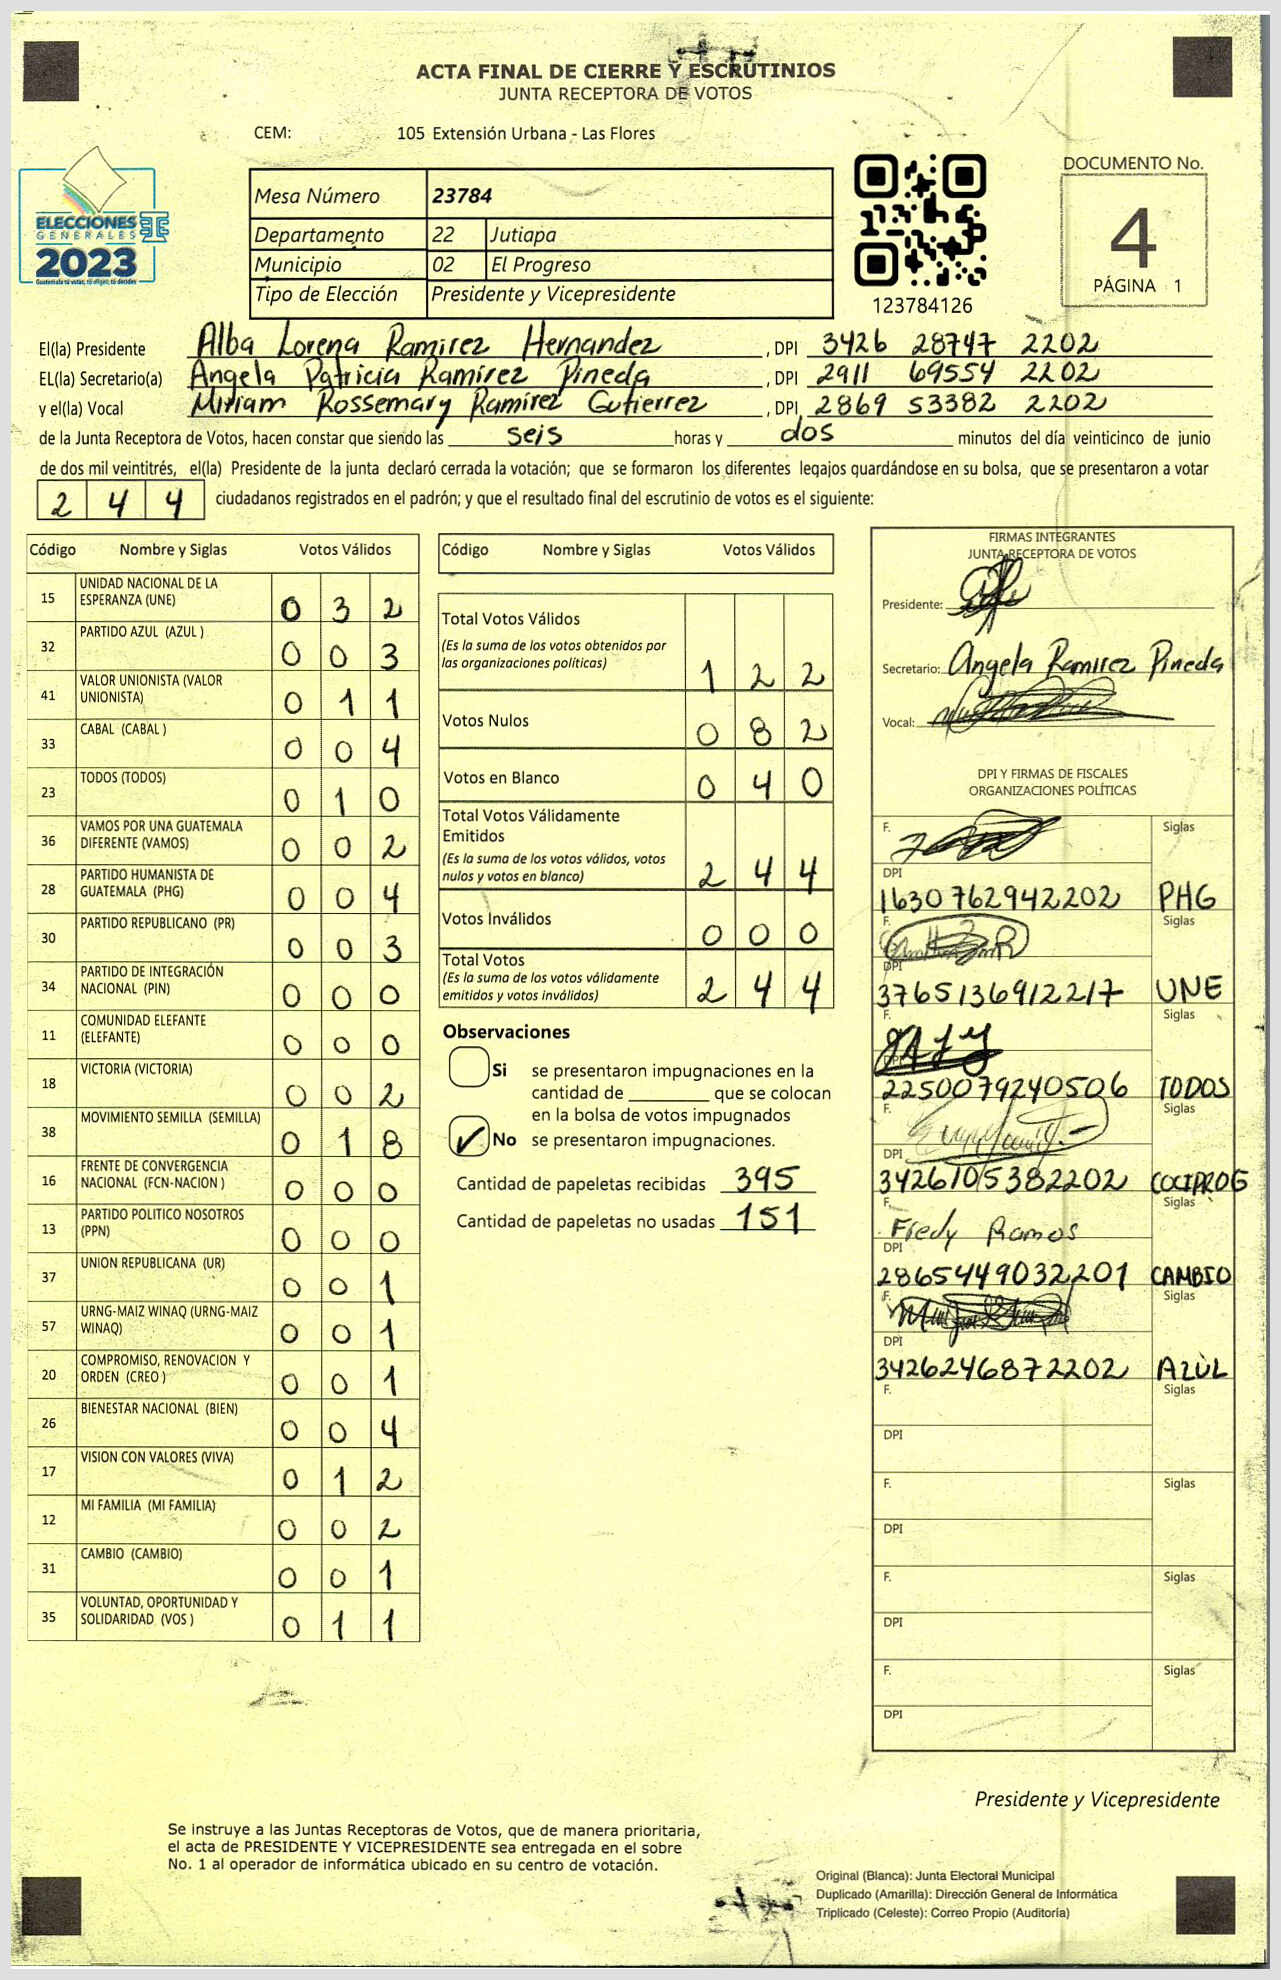 ACTA FINAL DE CIERRE Y ESCRUTINIOS
JUNTA RECEPTORA DE VOTOS
CEM: 105 Extensión Urbana - Las Flores
ELECCIONES
GENERALES
2023
Guatemala tú votas, tú eliges, tú decides
Mesa Número 23784
Departamento 22 Jutiapa
Municipio 02 El Progreso
Tipo de Elección Presidente y Vicepresidente
123784126
DOCUMENTO No.
4
PÁGINA 1
El(la) Presidente Alba Lorena Ramirez Hernandez , DPI 3426 28747 2202
EL(la) Secretario(a) Angela Patricia Ramirez Pineda , DPI 2911 69554 2202
y el(la) Vocal Miriam Rossemary Ramirez Gutierrez , DPI 2869 53382 2202
de la Junta Receptora de Votos, hacen constar que siendo las seis horas y dos minutos del día veinticinco de junio
de dos mil veintitrés, el(la) Presidente de la junta declaró cerrada la votación; que se formaron los diferentes legajos guardándose en su bolsa, que se presentaron a votar
2 4 4 ciudadanos registrados en el padrón; y que el resultado final del escrutinio de votos es el siguiente:
Código Nombre y Siglas Votos Válidos
15 UNIDAD NACIONAL DE LA
ESPERANZA (UNE) 0 3 2
32 PARTIDO AZUL (AZUL ) 0 0 3
41 VALOR UNIONISTA (VALOR
UNIONISTA) 0 1 1
33 CABAL (CABAL ) 0 0 4
23 TODOS (TODOS) 0 1 0
36 VAMOS POR UNA GUATEMALA
DIFERENTE (VAMOS) 0 0 2
28 PARTIDO HUMANISTA DE
GUATEMALA (PHG) 0 0 4
30 PARTIDO REPUBLICANO (PR) 0 0 3
34 PARTIDO DE INTEGRACIÓN
NACIONAL (PIN) 0 0 0
11 COMUNIDAD ELEFANTE
(ELEFANTE) 0 0 0
18 VICTORIA (VICTORIA) 0 0 2
38 MOVIMIENTO SEMILLA (SEMILLA) 0 1 8
16 FRENTE DE CONVERGENCIA
NACIONAL (FCN-NACION ) 0 0 0
13 PARTIDO POLITICO NOSOTROS
(PPN) 0 0 0
37 UNION REPUBLICANA (UR) 0 0 1
57 URNG-MAIZ WINAQ (URNG-MAIZ
WINAQ) 0 0 1
20 COMPROMISO, RENOVACION Y
ORDEN (CREO ) 0 0 1
26 BIENESTAR NACIONAL (BIEN) 0 0 4
17 VISION CON VALORES (VIVA) 0 1 2
12 MI FAMILIA (MI FAMILIA) 0 0 2
31 CAMBIO (CAMBIO) 0 0 1
35 VOLUNTAD, OPORTUNIDAD Y
SOLIDARIDAD (VOS ) 0 1 1
Código Nombre y Siglas Votos Válidos
Total Votos Válidos
(Es la suma de los votos obtenidos por
las organizaciones políticas) 1 2 2
Votos Nulos 0 8 2
Votos en Blanco 0 4 0
Total Votos Válidamente
Emitidos
(Es la suma de los votos válidos, votos
nulos y votos en blanco) 2 4 4
Votos Inválidos 0 0 0
Total Votos
(Es la suma de los votos válidamente
emitidos y votos inválidos) 2 4 4
Observaciones
Si se presentaron impugnaciones en la
cantidad de ________ que se colocan
en la bolsa de votos impugnados
No se presentaron impugnaciones.
Cantidad de papeletas recibidas 395
Cantidad de papeletas no usadas 151
FIRMAS INTEGRANTES
JUNTA RECEPTORA DE VOTOS
Presidente:
Secretario: Angela Ramirez Pineda
Vocal:
DPI Y FIRMAS DE FISCALES
ORGANIZACIONES POLÍTICAS
F. Siglas
DPI
1630762942202 PHG
F. Siglas
DPI
3765136912217 UNE
F. Siglas
DPI
2250079240506 TODOS
F. Siglas
DPI
3426105382202 COCIPROG
F. Siglas
Fredy Ramos
DPI
2865449032201 CAMBIO
F. Siglas
DPI
3426246872202 AZUL
F. Siglas
DPI
F. Siglas
DPI
F. Siglas
DPI
F. Siglas
DPI
Presidente y Vicepresidente
Se instruye a las Juntas Receptoras de Votos, que de manera prioritaria,
el acta de PRESIDENTE Y VICEPRESIDENTE sea entregada en el sobre
No. 1 al operador de informática ubicado en su centro de votación.
Original (Blanca): Junta Electoral Municipal
Duplicado (Amarilla): Dirección General de Informática
Triplicado (Celeste): Correo Propio (Auditoría)